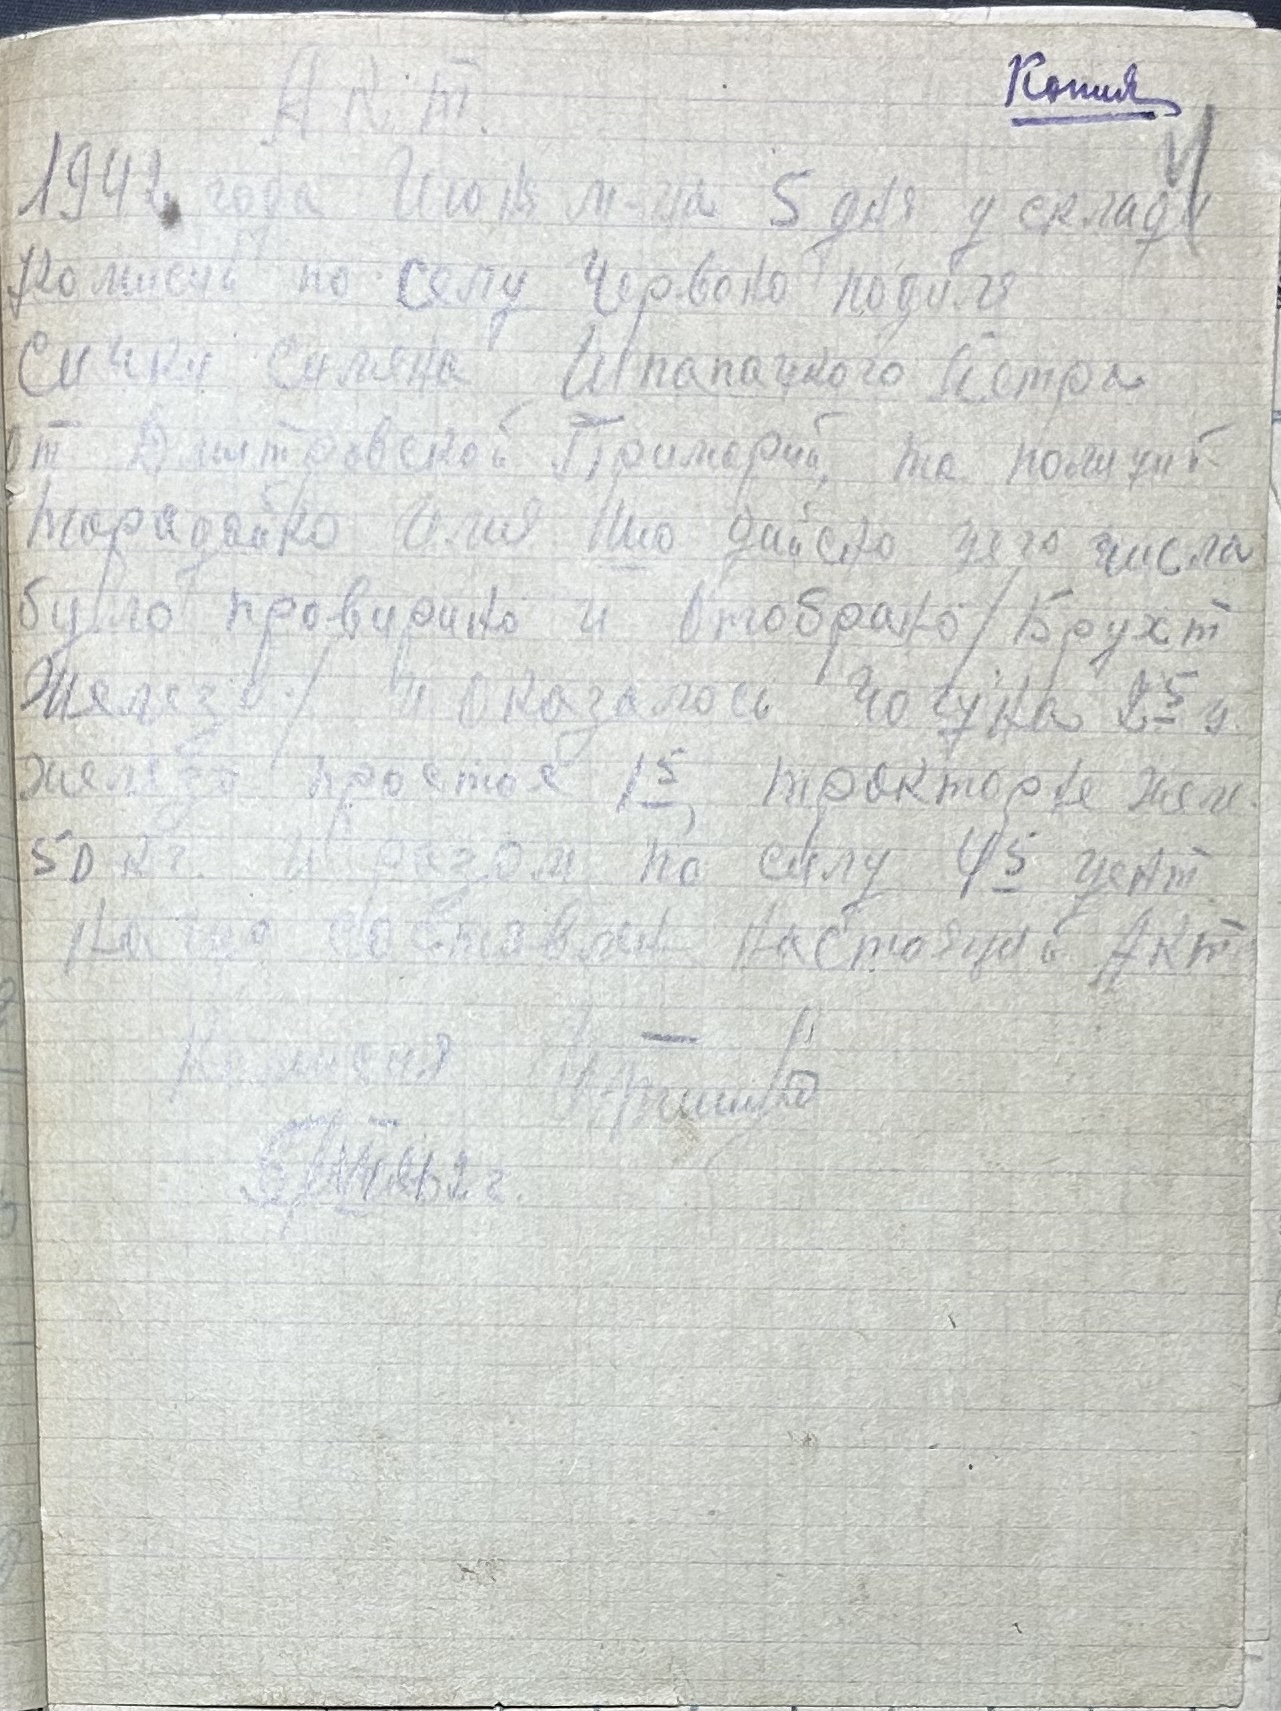 Копия
Акт.
1942 года Июня м-ца 5 дня у склади
Комисий по селу Червоно подиля
Сички Симена Шпапацкого Петра
от Дмитровской Примарий, та полицит
Тарадайко Илия що дийсно цего числа
було провирино и отобрано /Брухт
Железо/ и оказалось чогуна 2 5 ц.
железо простоя 1 5, тракторне жел.
50 кг. и разом по силу 4 5 цент
На що составлен настоящий Акт
Комисия
42 г.